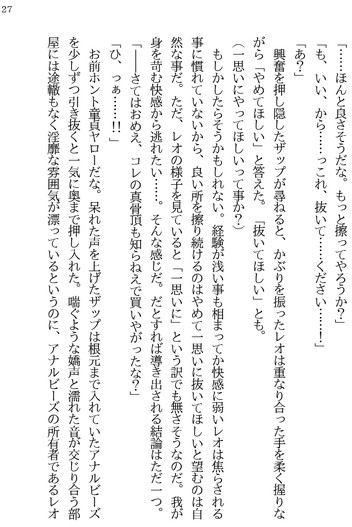 27
「……ほんと良さそうだな。もっと擦ってやろうか?」
「も、いい、から……っこれ、抜いて……ください……!」
「あ?」
　興奮を押し隠したザップが尋ねると、かぶりを振ったレオは重なり合った手を柔く握りな
がら「やめてほしい」と答えた。「抜いてほしい」とも。
（一思いにやってほしいって事か?）
　もしかしたらそうかもしれない。経験が浅い事も相まってか快感に弱いレオは焦らされる
事に慣れていないから、良い所を擦り続けるのはやめて一思いに抜いてほしいと望むのは自
然な事だ。ただ、レオの様子を見ていると「一思いに」という訳でも無さそうなのだ。我が
身を苛む快感から逃れたい……。そんな感じだ。だとすれば導き出される結論はただ一つ。
「――さてはおめえ、コレの真骨頂も知らねえで買いやがったな?」
「ひ、っぁ……!!」
　お前ホント童貞ヤローだな。呆れた声を上げたザップは根元まで入れていたアナルビーズ
を少しずつ引き抜くと一気に奥まで押し入れた。喘ぐような嬌声と濡れた音が交じり合う部
屋には途轍もなく淫靡な雰囲気が漂っているというのに、アナルビーズの所有者であるレオ